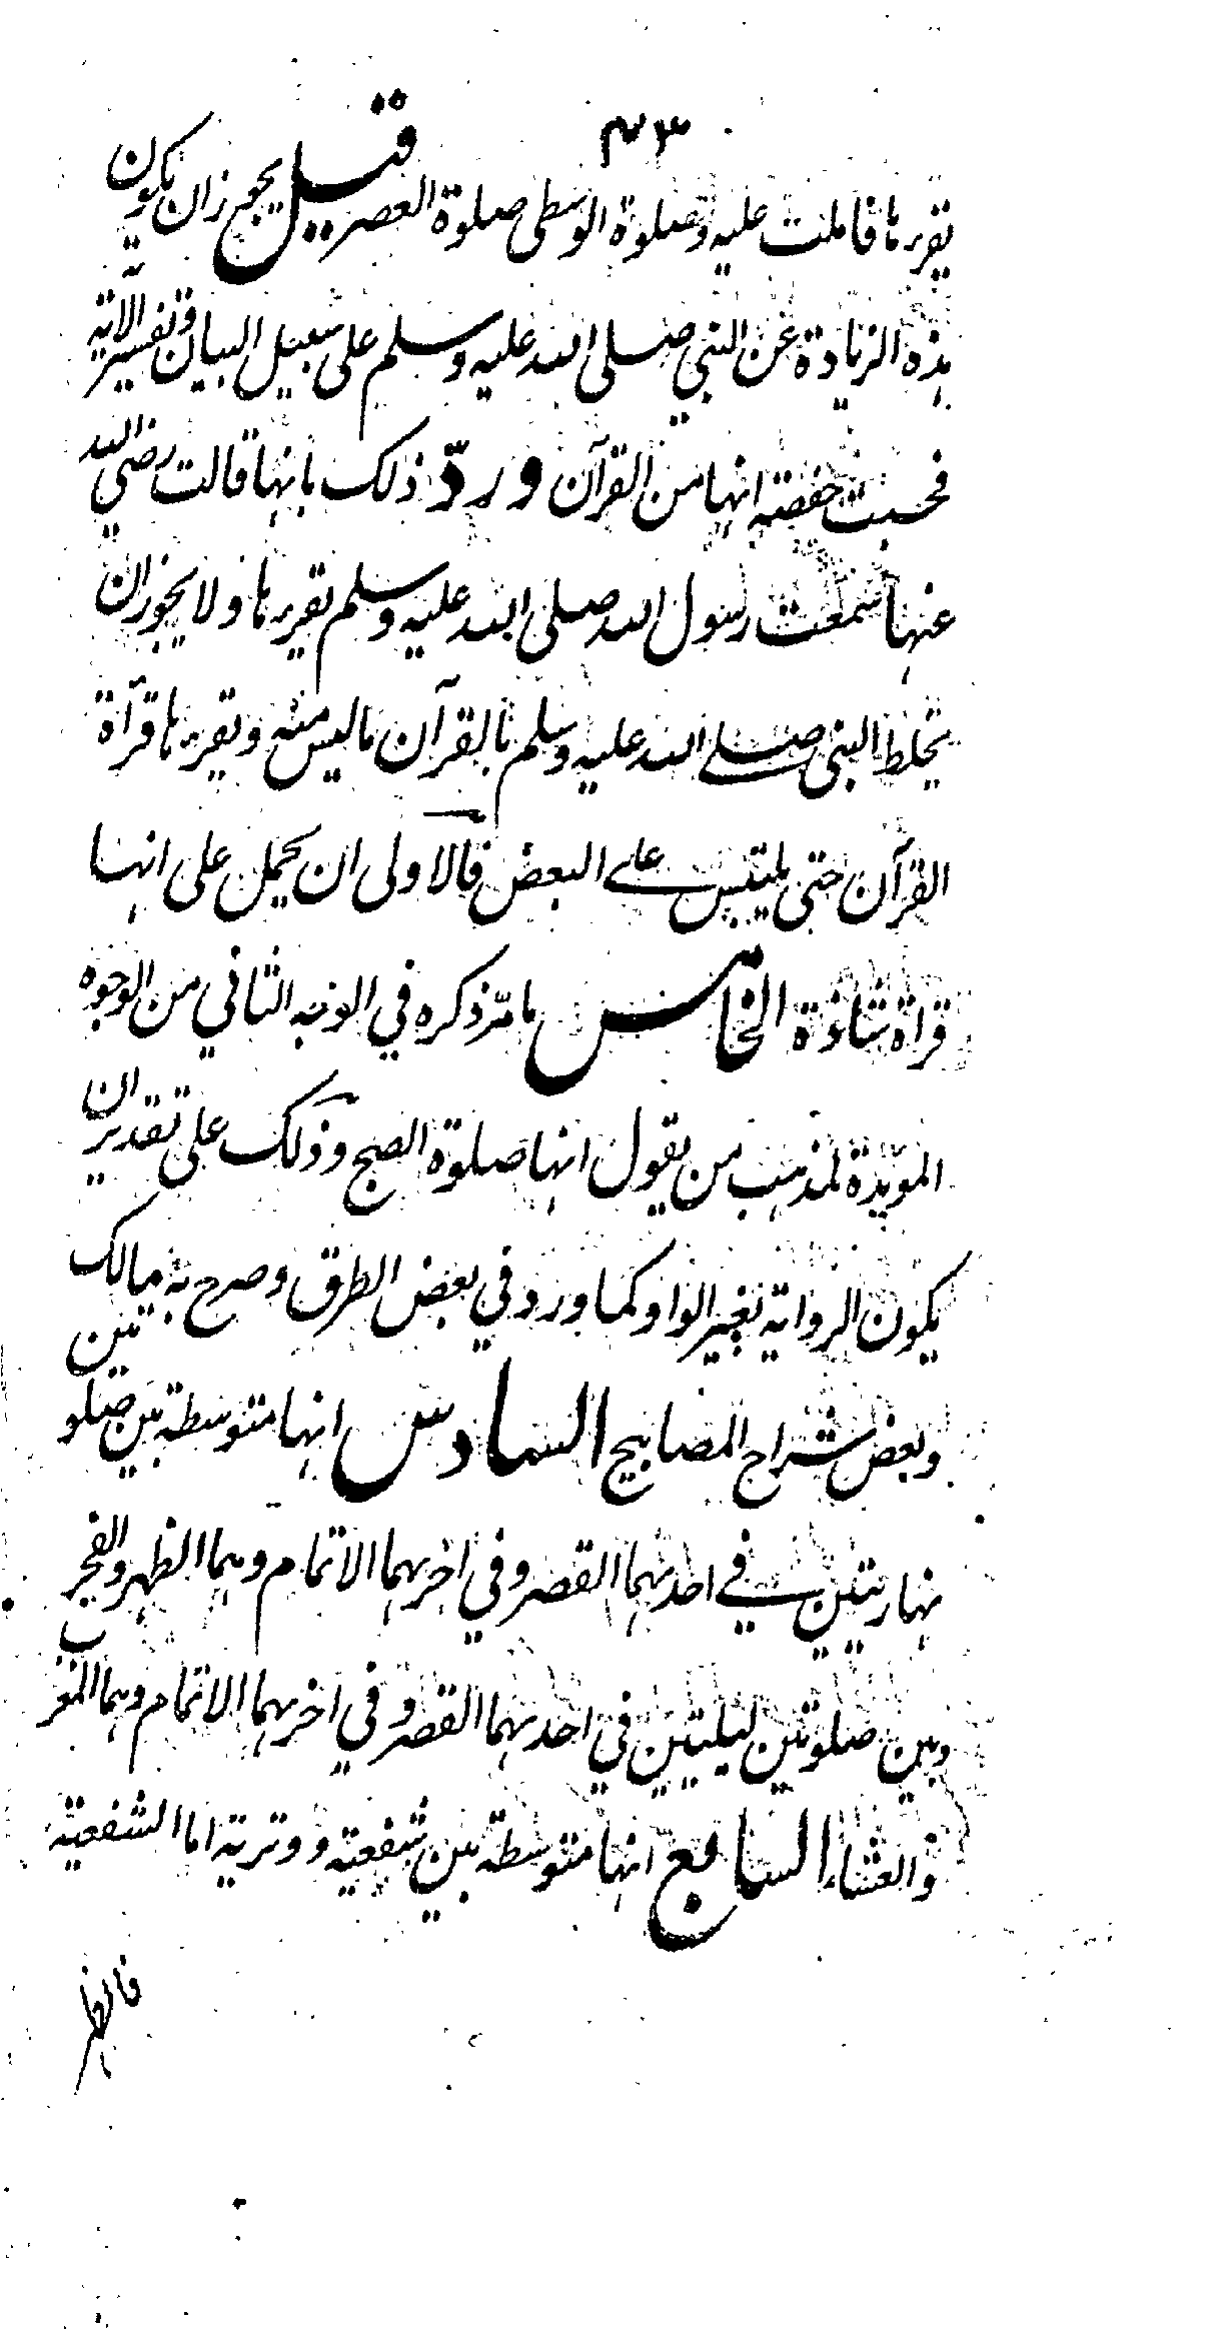 ٤٣
يقرءها فاملت عليه وصلوة الوسطى صلوة العصر قيل يجوز ان يكون
هذه الزيادة عن النبي صلى الله عليه وسلم على سبيل البيان وتفسير الآية
فحسبت حفصة انها من القرآن ورد ذلك بانها قالت رضي الله
عنها سمعت رسول الله صلى الله عليه وسلم يقرءها ولا يجوز ان
يخلط النبي صلى الله عليه وسلم بالقرآن ما ليس منه ويقرءها قرآة
القرآن حتى يلتبس على البعض فالاولى ان يحمل على انها
قراة شاذة الخامس ما مرّ ذكره في الوجه الثاني من الوجوه
المؤيدة لمذهب من يقول انها صلوة الصبح وذلك على تقدير ان
يكون الرواية بغير الواو كما ورد في بعض الطرق وصرح به ميالك
وبعض شراح المصابيح السادس انها متوسطة بين صلوتين
نهاريتين في احدىهما القصر وفي اخريهما الاتمام وهما الظهر والفجر
وبين صلوتين ليليتين في احدىهما القصر وفي اخريهما الاتمام وهما المغرب
والعشاء السابع انها متوسطة بين شفعية ووترية اما الشفعية
فالظهر